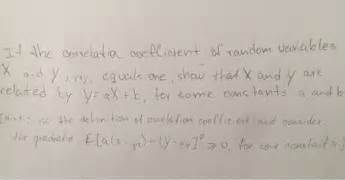 If the correlation coefficient of random variables
X and Y equals one, show that X and Y are
related by Y = aX + b, for some constants a and b
use the definition of correlation coefficient and consider
the E[a(x - ) - (y - )]² ≥ 0, for some constant